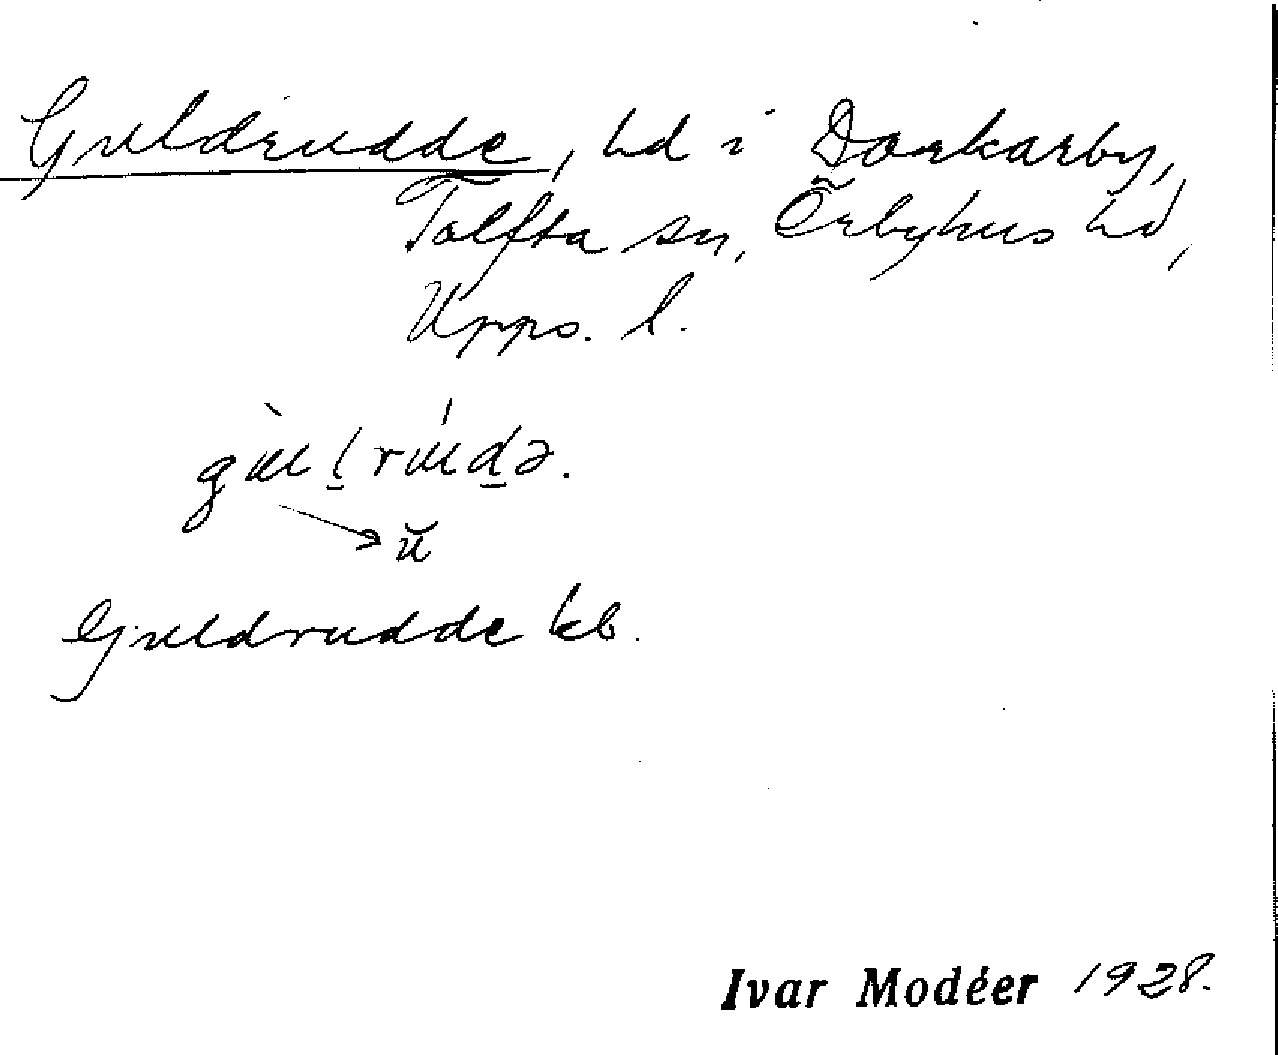 Guldrudde, hd i Darkarby,
Tolfta sn, Örbyhus hd,
Upps. l.
gu̇l̠rúd̠ə.
ŭ
Guldrudde kb.
Ivar Modéer 1928.